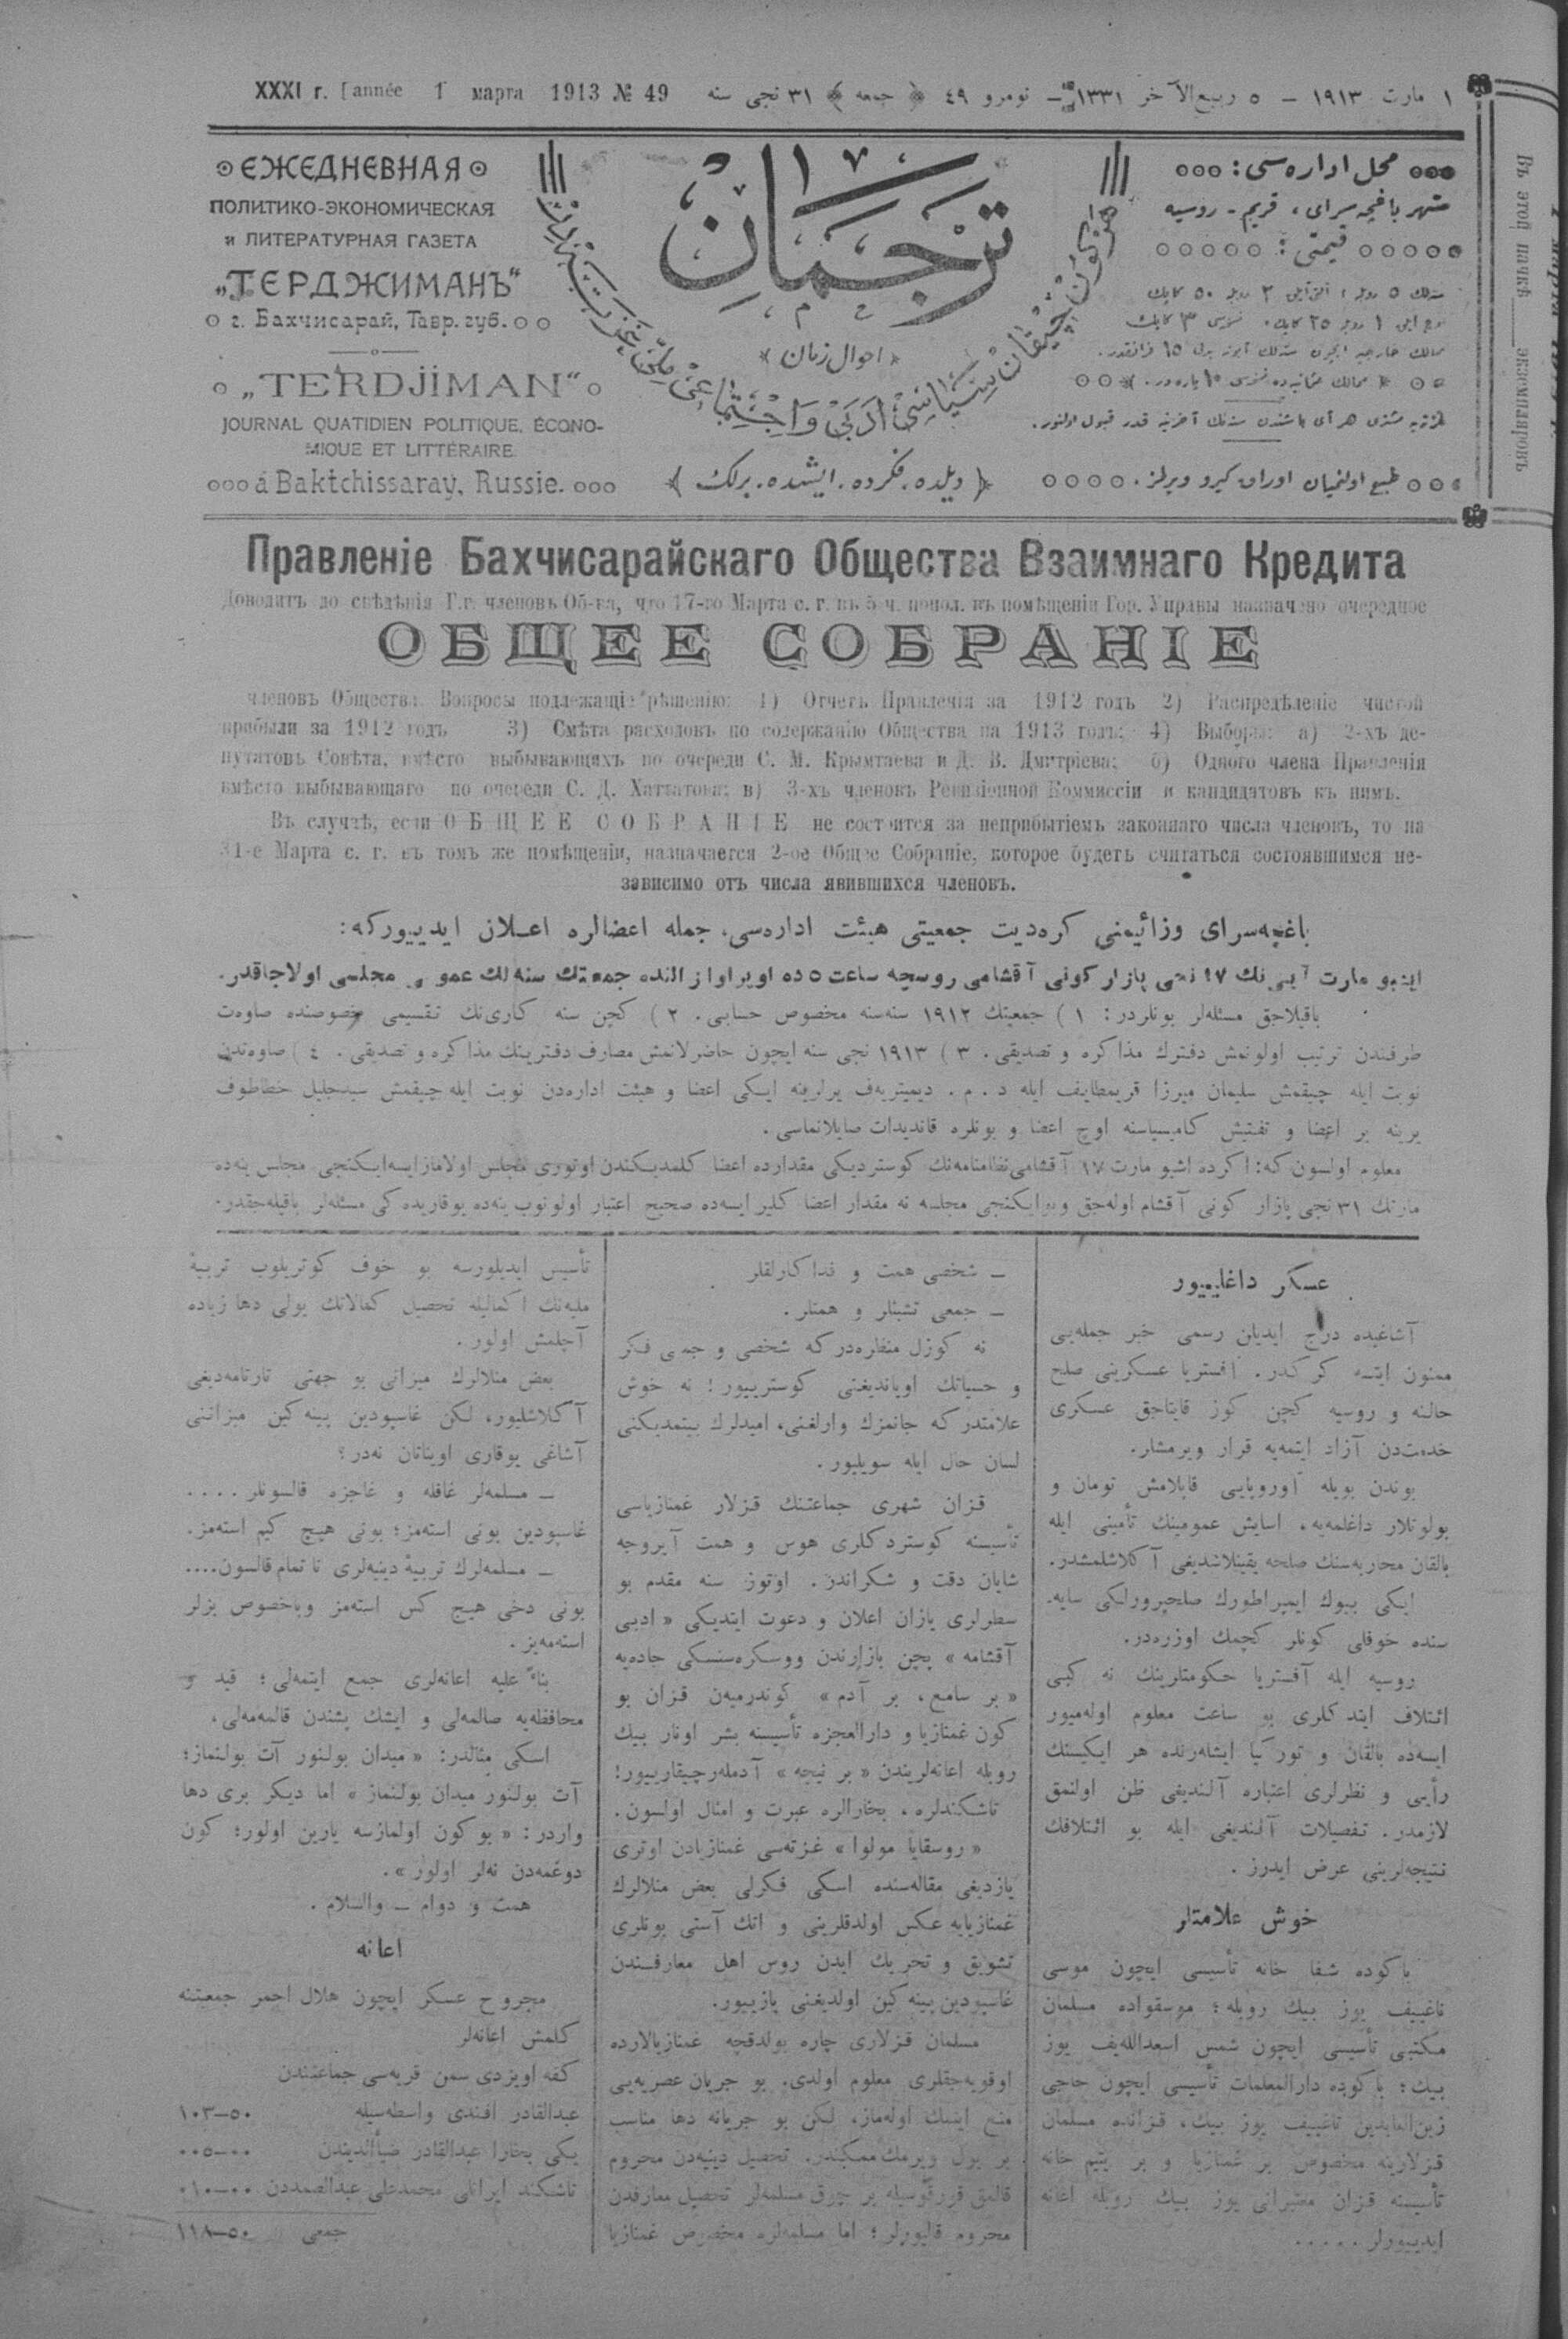 XXXI г. année 1 марта 1913 № 49
١ مارت ١٩١٣ – ٥ ربيع الآخر ١٣٣١ – نومرو ٤٩ ﴿ جمعه ﴾ ٣١ نجی سنه
ЕЖЕДНЕВНАЯ
ПОЛИТИКО-ЭКОНОМИЧЕСКАЯ
и ЛИТЕРАТУРНАЯ ГАЗЕТА
„ТЕРДЖИМАНЪ“
г. Бахчисарай, Тавр. губ.
„TERDJIMAN“
JOURNAL QUATIDIEN POLITIQUE, ÉCONO-
MIQUE ET LITTÉRAIRE
á Baktchissaray, Russie.
ترجمان
﴿ احوال زمان ﴾
﴿ ديلده . فكرده . ايشده . برلك ﴾
محل اداره سی :
شهر باغچه سرای ، قريم - روسيه
قيمتی :
طبع اولنميان اوراق كيرو ويرلمز .
Въ этой пачкѣ экземпляровъ
Правленіе Бахчисарайскаго Общества Взаимнаго Кредита
Доводитъ до свѣдѣнія Г.г. членовъ Об-ва, что 17-го Марта с. г. въ 5 ч. попол. въ помѣщеніи Гор. Управы назначено очередное
ОБЩЕЕ СОБРАНІЕ
членовъ Общества. Вопросы подлежащіе рѣшенію: 1) Отчетъ Правленія за 1912 годъ 2) Распредѣленіе чистой
прибыли за 1912 годъ 3) Смѣта расходовъ по содержанію Общества на 1913 годъ; 4) Выборы: а) 2-хъ де-
путатовъ Совѣта, вмѣсто выбывающихъ по очереди С. М. Крымтаева и Д. В. Дмитріева; б) Одного члена Правленія
вмѣсто выбывающаго по очереди С. Д. Хаттатова; в) 3-хъ членовъ Ревизіонной Коммиссіи и кандидатовъ къ нимъ.
Въ случаѣ, если ОБЩЕЕ СОБРАНІЕ не состоится за неприбытіемъ законнаго числа членовъ, то на
31-е Марта с. г. въ томъ же помѣщеніи, назначается 2-ое Общее Собраніе, которое будетъ считаться состоявшимся не-
зависимо отъ числа явившихся членовъ.
باغچه‌سرای وزائيمنی كره‌ديت جمعيتی هيئت اداره‌سی، جمله اعضالره اعلان ايدييوركه:
اشبو مارت آيی‌نك ١٧ نجی پازار كونی آقشامی روسچه ساعت ٥ ده اوپراوا زالنده جمعيتك سنه‌لك عمومی مجلسی اولاجاقدر.
باقيلاجق مسئله‌لر بونلردر: ١ ) جمعيتك ١٩١٢ سنه‌سنه مخصوص حسابی. ٢ ) كچن سنه كاری‌نك تقسيمی خصوصنده صاوه‌ت
طرفندن ترتيب اولونمش دفترك مذاكره و تصديقی. ٣ ) ١٩١٣ نجی سنه ايچون حاضرلانمش مصارف دفترينك مذاكره و تصديقی. ٤ ) صاوه‌تدن
نوبت ايله چيقمش سليمان ميرزا قريمطايف ايله د . م . ديميتريه‌ف يرلرينه ايكی اعضا و هيئت اداره‌دن نوبت ايله چيقمش سيدجليل خطاطوف
يرينه بر اعضا و تفتيش كاميسياسنه اوچ اعضا و بونلره قانديدات صايلانماسی .
معلوم اولسون كه: اكرده اشبو مارت ١٧ آقشامی نظامنامه‌نك كوسترديكی مقدارده اعضا كلمديكندن اوتوری مجلس اولاماز ايسه ايكنجی مجلس ينه‌ده
مارتك ٣١ نجی پازار كونی آقشام اوله‌جق و بو ايكنجی مجلسه نه مقدار اعضا كلير ايسه‌ده صحيح اعتبار اولونوب ينه‌ده يوقاريده كی مسئله‌لر باقيله‌جقدر.
عسكر داغلييور
آشاغيده درج ايديلن رسمی خبر جمله‌يی
ممنون ايتسه كركدر. آفستريا عسكرينی صلح
حالنه و روسيه كچن كوز قايتاجق عسكری
خدمتدن آزاد ايتمه‌يه قرار ويرمشلر.
بوندن بويله آوروپايی قاپلامش تومان و
بولوتلار داغلمه‌يه، اسايش عمومينك تأمينی ايله
بالقان محاربه‌سنك صلحه يقينلاشديغی آكلاشلمشدر.
ايكی بيوك ايمپراطورك صلحپرورلكی سايه‌-
سنده خوفلی كونلر كچمك اوزره‌در.
روسيه ايله آفستريا حكومتلرينك نه كبی
ائتلاف ايتدكلری بو ساعت معلوم اوله‌ميور
ايسه‌ده بالقان و توركيا ايشلرنده هر ايكيسنك
رأيی و نظرلری اعتباره آلنديغی ظن اولنمق
لازمدر. تفصيلات آلنديغی ايله بو ائتلافك
نتيجه‌لرينی عرض ايدرز .
خوش علامتلر
باكوده شفا خانه تأسيسی ايچون موسی
تاغييف يوز بيك روبله؛ موسقواده مسلمان
مكتبی تأسيسی ايچون شمس اسعدالله‌يف يوز
بيك؛ باكوده دارالمعلمات تأسيسی ايچون حاجی
زين‌العابدين تاغييف يوز بيك، قزانده مسلمان
قزلارينه مخصوص بر غمنازيا و بر يتيم خانه
تأسيسنه قزان معتبرانی يوز بيك روبله اعانه
ايدييورلر .....
ـ شخصی همت و فداكارلقلر
ـ جمعی تشبثلر و همتلر.
نه كوزل منظره‌در كه شخصی و جمعی فكر
و حسياتك اويانديغنی كوسترييور! نه خوش
علامتدر كه جانمزك وارلغنی، اميدلرك بيتمديكنی
لسان حال ايله سويليور.
قزان شهری جماعتنك قزلار غمنازياسی
تأسيسنه كوستردكلری هوس و همت آيروجه
شايان دقت و شكراندر. اوتوز سنه مقدم بو
سطرلری يازان اعلان و دعوت ايتديكی « ادبی
آقشامه » پچن بازارندن ووسكره‌سنسكی جاده‌يه
« بر سامع، بر آدم » كوندرميه‌ن قزان بو
كون غمنازيا و دارالعجزه تأسيسنه بشر اونار بيك
روبله اعانه‌لريندن « بر نيچه » آدملر چيقارييور!
تاشكندلره، بخارالره عبرت و امثال اولسون.
« روسقايا مولوا » غزته‌سی غمنازيادن اوتری
يازديغی مقاله‌سنده اسكی فكرلی بعض منلالرك
غمنازيايه عكس اولدقلرينی و اتك آستی بونلری
تشويق و تحريك ايدن روس اهل معارفندن
غاسپودين پينه‌كين اولديغنی يازييور.
مسلمان قزلاری چاره بولدقچه غمنازيالارده
اوقويه‌جقلری معلوم اولدی. بو جريان عصريه‌يی
منع ايتمك اوله‌ماز، ليكن بو جريانه دها مناسب
بر يول ويرمك ممكندر. تحصيل دينيه‌دن محروم
قالمق قورقوسيله بر چوق مسلمه‌لر تحصيل معارفدن
محروم قاليورلر؛ اما مسلمه‌لره مخصوص غمنازيا
تأسيس ايديلورسه بو خوف كوتريلوب تربيۀ
مليه‌نك اكماليله تحصيل كمالاتك يولی دها زياده
آچلمش اولور.
بعض منلالرك ميزانی بو جهتی تارتامه‌ديغی
آكلاشليور، لكن غاسپودين پينه‌كين ميزاننی
آشاغی يوقاری اويناتان نه‌در؟
ـ مسلمه‌لر غافله و عاجزه قالسونلر....
غاسپودين بونی استه‌مز؛ بونی هيچ كيم استه‌مز.
ـ مسلمه‌لرك تربيۀ دينيه‌لری نا تمام قالسون....
بونی دخی هيچ كس استه‌مز وباخصوص بزلر
استه‌مه‌يز.
بناءً عليه اعانه‌لری جمع ايتمه‌لی؛ قيد و
محافظه‌يه صالمه‌لی و ايشك پشندن قالمه‌مه‌لی.
اسكی مثالدر: « ميدان بولنور آت بولنماز؛
آت بولنور ميدان بولنماز » اما ديكر بری دها
واردر: « بو كون اولمازسه يارين اولور؛ كون
دوغمه‌دن نه‌لر اولور ».
همت و دوام ـ والسلام .
اعانه
مجروح عسكر ايچون هلال احمر جمعيتنه
كلمش اعانه‌لر
كفه اويزدی سمن قريه‌سی جماعتندن
عبدالقادر افندی واسطه‌سيله ٥٠–١٠٣
يكی بخارا عبدالقادر ضياٴالديندن ٠٠–٠٠٥
تاشكند ايرانلی محمدعلی عبدالصمددن ٠٠–٠١٠
جمعی ٥٠–١١٨